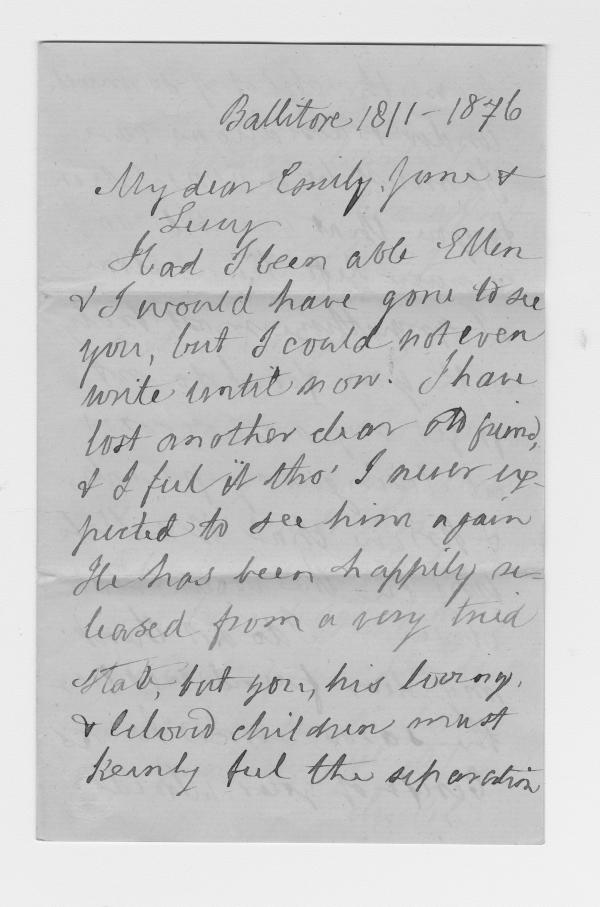 Ballitore 18/1 - 1876
My dear Emily, Jane &
Lucy
Had I been able Ellen
& I would have gone to see
you, but I could not even
write until now. I have
lost another dear old friend,
& I feel it tho' I never ex-
pected to see him again
He has been happily re-
leased from a very tried
state, but you, his loving,
& beloved children must
keenly feel the separation